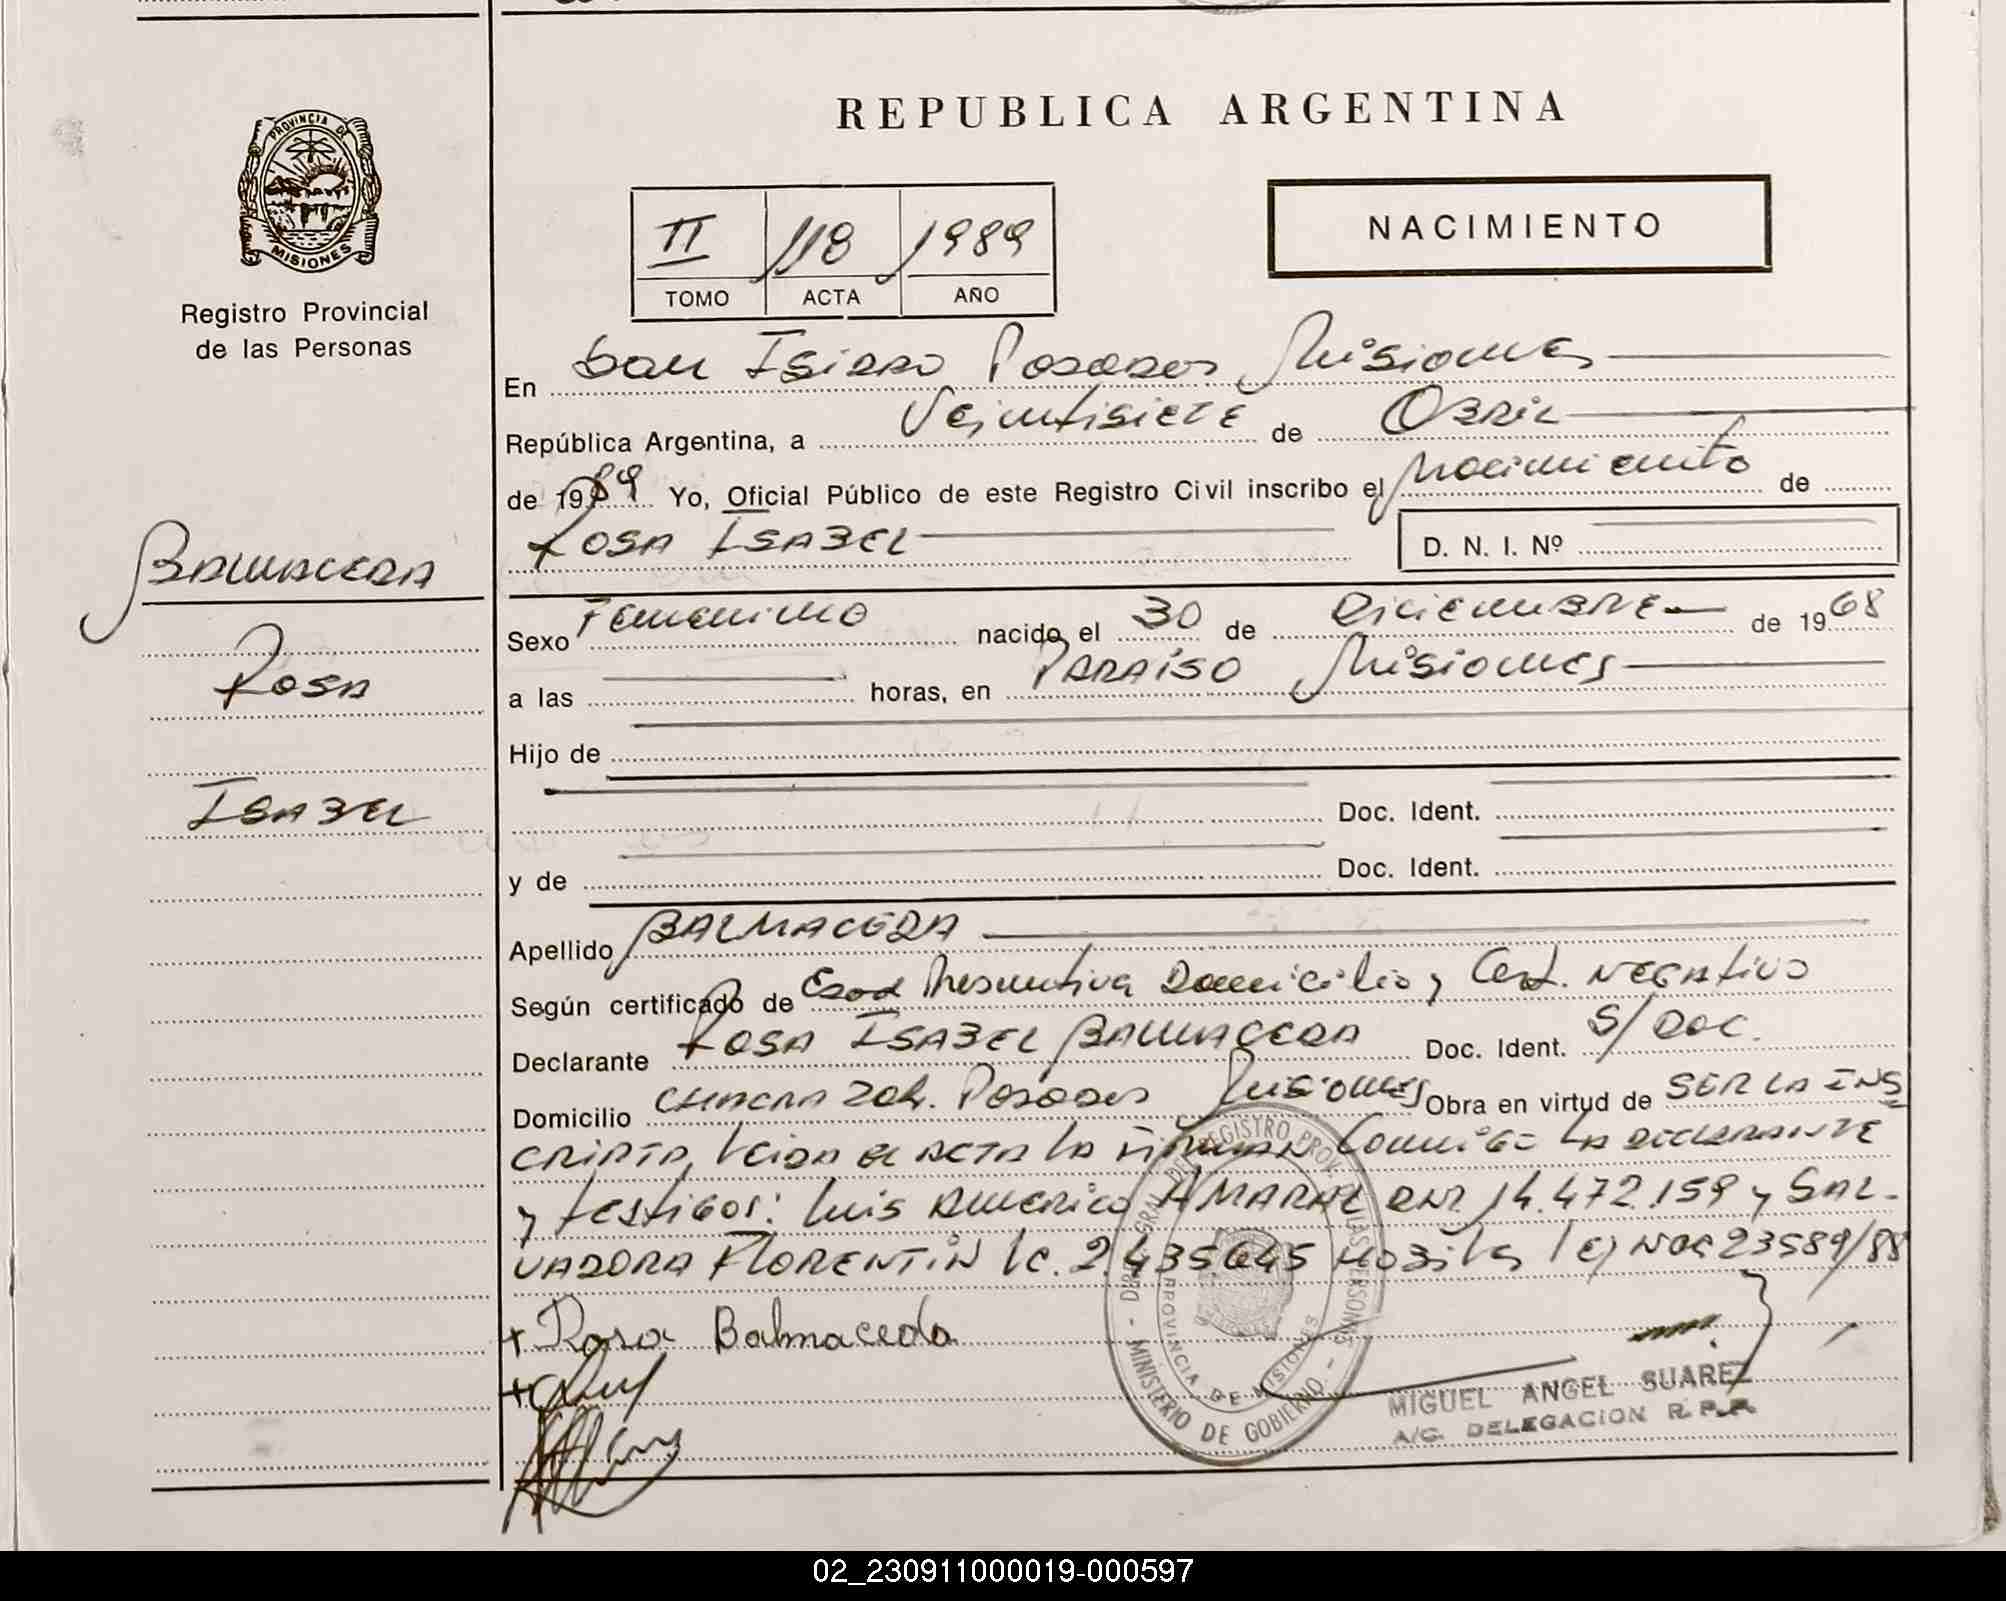 REPUBLICA ARGENTINA
PROVINCIA DE
MISIONES
Registro Provincial
de las Personas
II 118 1989
TOMO ACTA AÑO
NACIMIENTO
En San Isidro Posadas Misiones
República Argentina, a Veintisiete de Abril
de 1989 Yo, Oficial Público de este Registro Civil inscribo el Nacimiento de
Rosa Isabel
D. N. I. Nº
BALMACEDA
Rosa
Isabel
Sexo Femenino nacido el 30 de Diciembre de 1968
a las horas, en Paraiso Misiones
Hijo de
Doc. Ident.
y de Doc. Ident.
Apellido BALMACEDA
Según certificado de Edad Presuntiva Domicilio y Cert. Negativo
Declarante Rosa Isabel Balmaceda Doc. Ident. S/DOC.
Domicilio Chacra 204. Posadas Misiones Obra en virtud de SER LA INS
CRIPTA, Leida el acta la firman Conmigo la declarante
y testigos: Luis Americo AMARAL DNI 14.472.159 y SAL-
VADORA FLORENTIN lc. 2.435.645 Hobilta ley NAC 23589/88
+ Rosa Balmaceda
DIR. GRAL. DEL REGISTRO PROV. DE LAS PERSONAS
- MINISTERIO DE GOBIERNO -
PROVINCIA DE MISIONES
MIGUEL ANGEL SUAREZ
A/C. DELEGACION R.P.P.
02_230911000019-000597